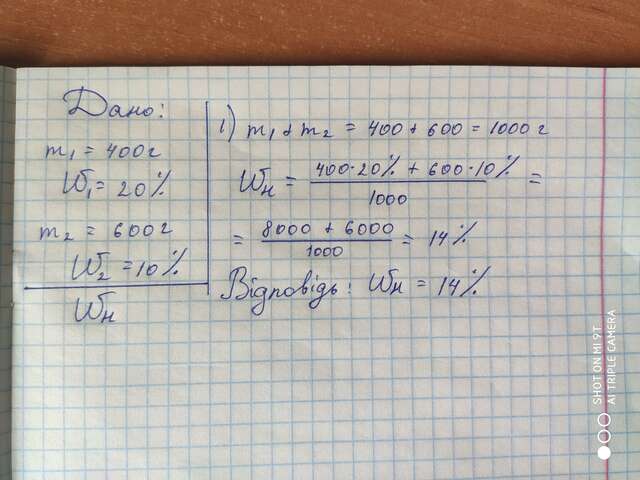 Дано:
m₁ = 400г
W₁ = 20%
m₂ = 600г
W₂ = 10%
Wн
1) m₁ + m₂ = 400 + 600 = 1000 г
Wн = (400·20% + 600·10%) / 1000 =
= (8000 + 6000) / 1000 = 14%
Відповідь: Wн = 14%
SHOT ON MI 9T
AI TRIPLE CAMERA